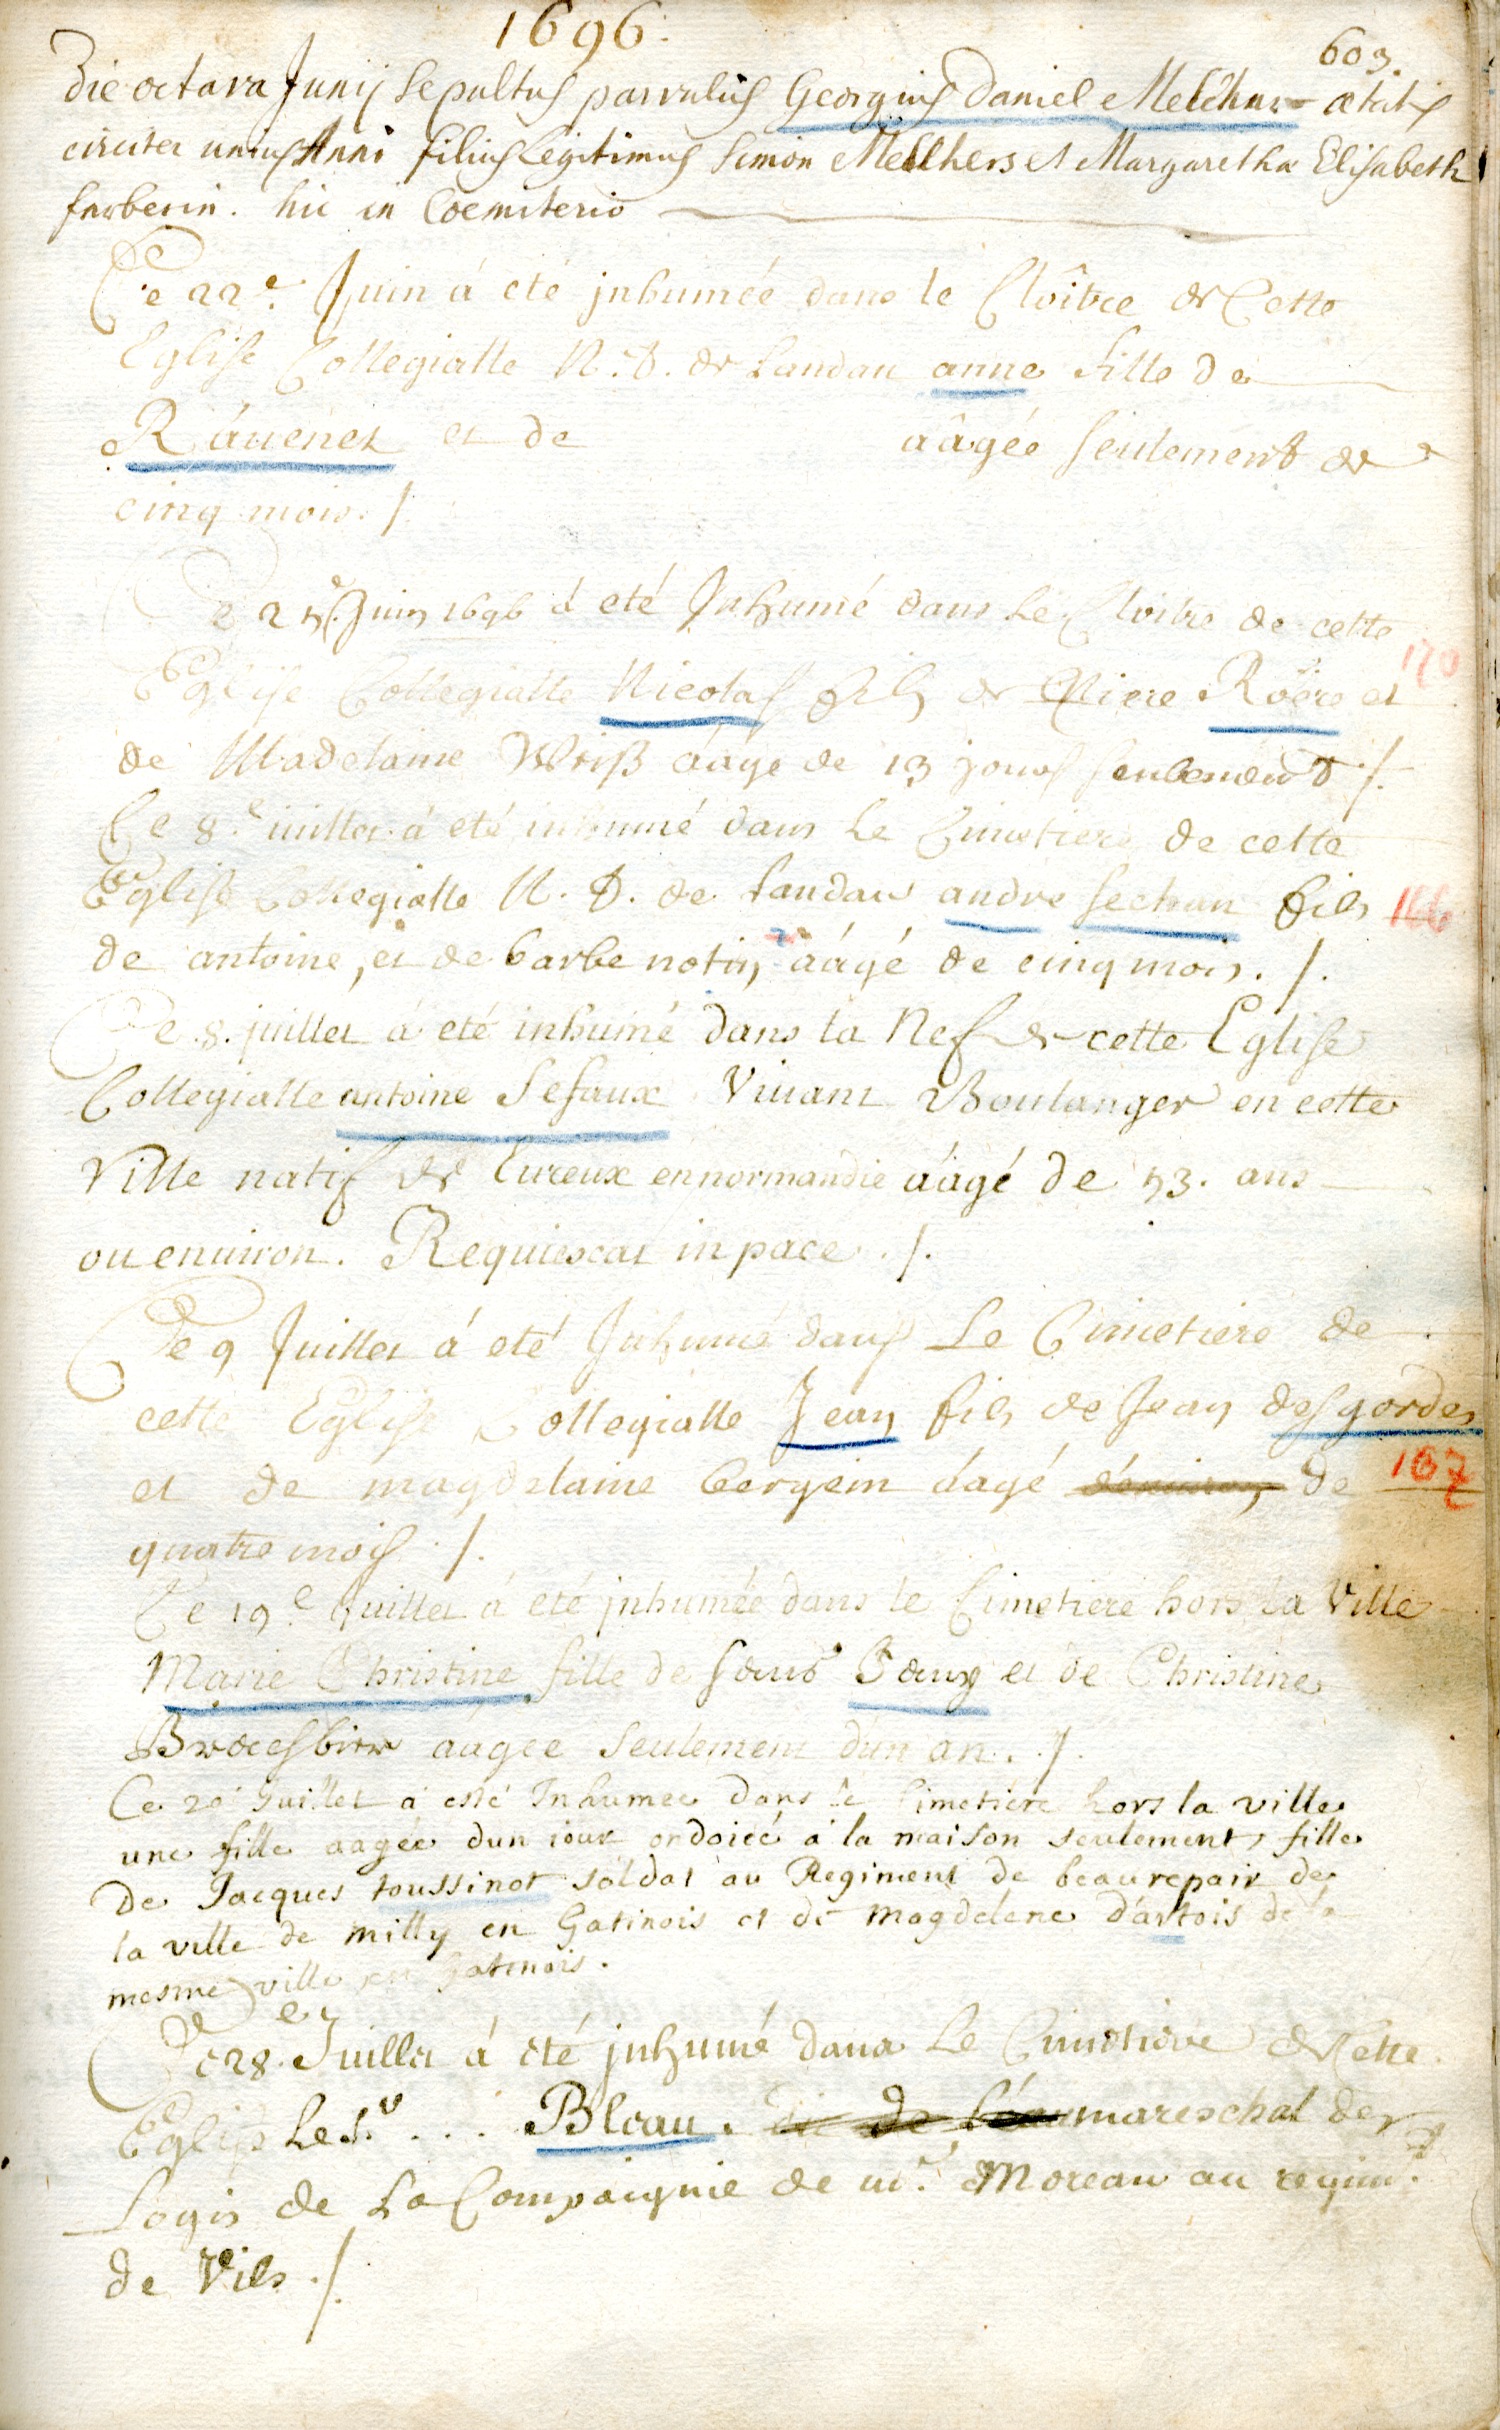 1696.
603.
Die octava Junij sepultus parvulus Georgius Daniel Melchers ætatis
circiter unius Anni filius legitimus Simon Mellhers et Margaretha Elisabeth
farberin. hic in Coemiterio
Ce 22.e Juin á eté jnhumée dans le Cloître de Cette
Eglise Collegialle N. D. de Landau anne fille de
Ráuenez et de aâgée seulement de
cinq mois ./.
Ce 25.e Juin 1696 á eté Jnhumé dans Le Cloitre de cette
Eglise Collegialle Nicolas fils de Pierre Roëre et
170
de Madelaine Weiß áagé de 13 jours seulement ./.
Ce 8.e iuillet á eté inhumé dans Le Cimetiere de cette
Eglise Collegialle N. D. de Landau andre sechan fils
166
de antoine, et de barbe notin áágé de cinq mois. /.
Ce 8. juillet á eté inhumé dans la Nef de cette Eglise
Collegialle antoine Sefaux Viuant Boulanger en cette
Ville natif de Eureux en normandie áágé de 53. ans
ou enuiron. Requiescat in pace ./.
Ce 9 Juillet á eté Jnhumé dans Le Cimetiere de
cette Eglise Collegialle Jean fils de Jean desgordes
et de magdelaine bergein áagé d'enuiron de
167
quatre mois ./.
Ce 19.e Juillet á eté jnhumée dans le Cimetiere hors la Ville
Marie Christine fille de et de Christine
áagee seulement d'un an ./.
Ce 20 Juillet a esté Inhumee dans le Cimetiere hors la ville
une fille aagée dun iour ondoiéé á la maison seulement, fille
De Jacques toussinot soldat au Regiment de beaurepair de
la ville de milly en Gatinois et de Magdelene d'artois de la
mesme ville en Gatinois.
Ce 28.e Juillet á eté jnhumé dans Le Cimetiere de Cette
Eglise Le s.r . . . Bleau. mareschal des
Logis de La Compaignie de m.r Moreau au regim.t
de Vils ./.